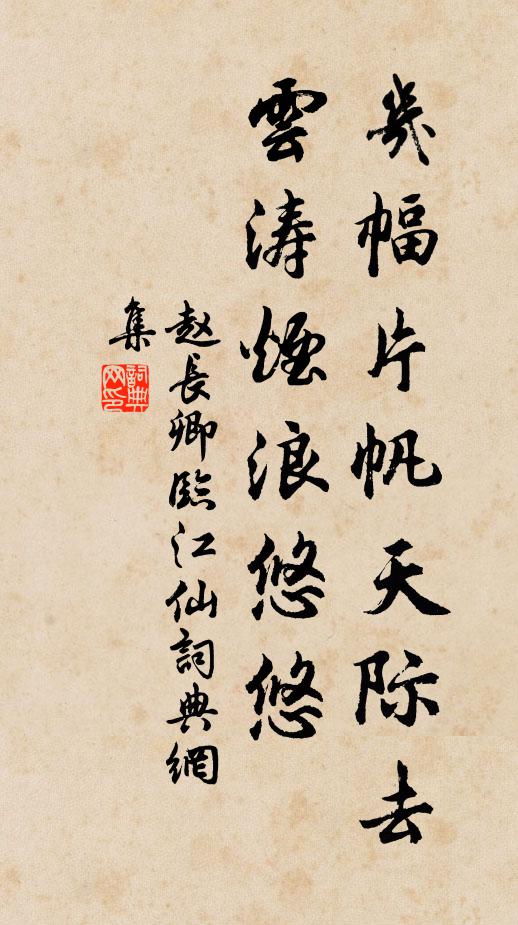 幾幅片帆天际去
雲涛煙浪悠悠
赵長卿臨江仙詞典網
集
詞典
网印